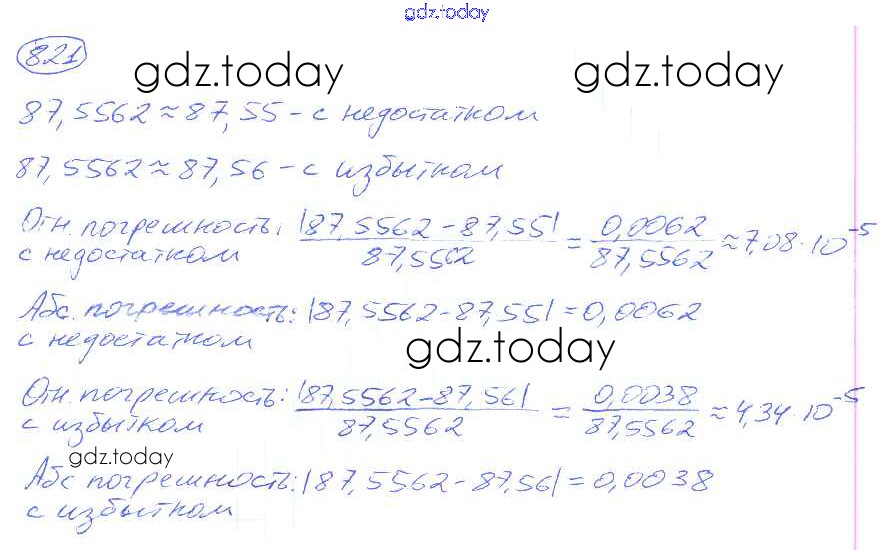 gdz.today
821
gdz.today gdz.today
87,5562 ≈ 87,55 - с недостатком
87,5562 ≈ 87,56 - с избытком
Отн. погрешность: |87,5562 - 87,55| / 87,5562 = 0,0062 / 87,5562 ≈ 7,08 · 10^-5
с недостатком
Абс. погрешность: |87,5562 - 87,55| = 0,0062
с недостатком
gdz.today
Отн. погрешность: |87,5562 - 87,56| / 87,5562 = 0,0038 / 87,5562 ≈ 4,34 · 10^-5
с избытком
gdz.today
Абс погрешность: |87,5562 - 87,56| = 0,0038
с избытком